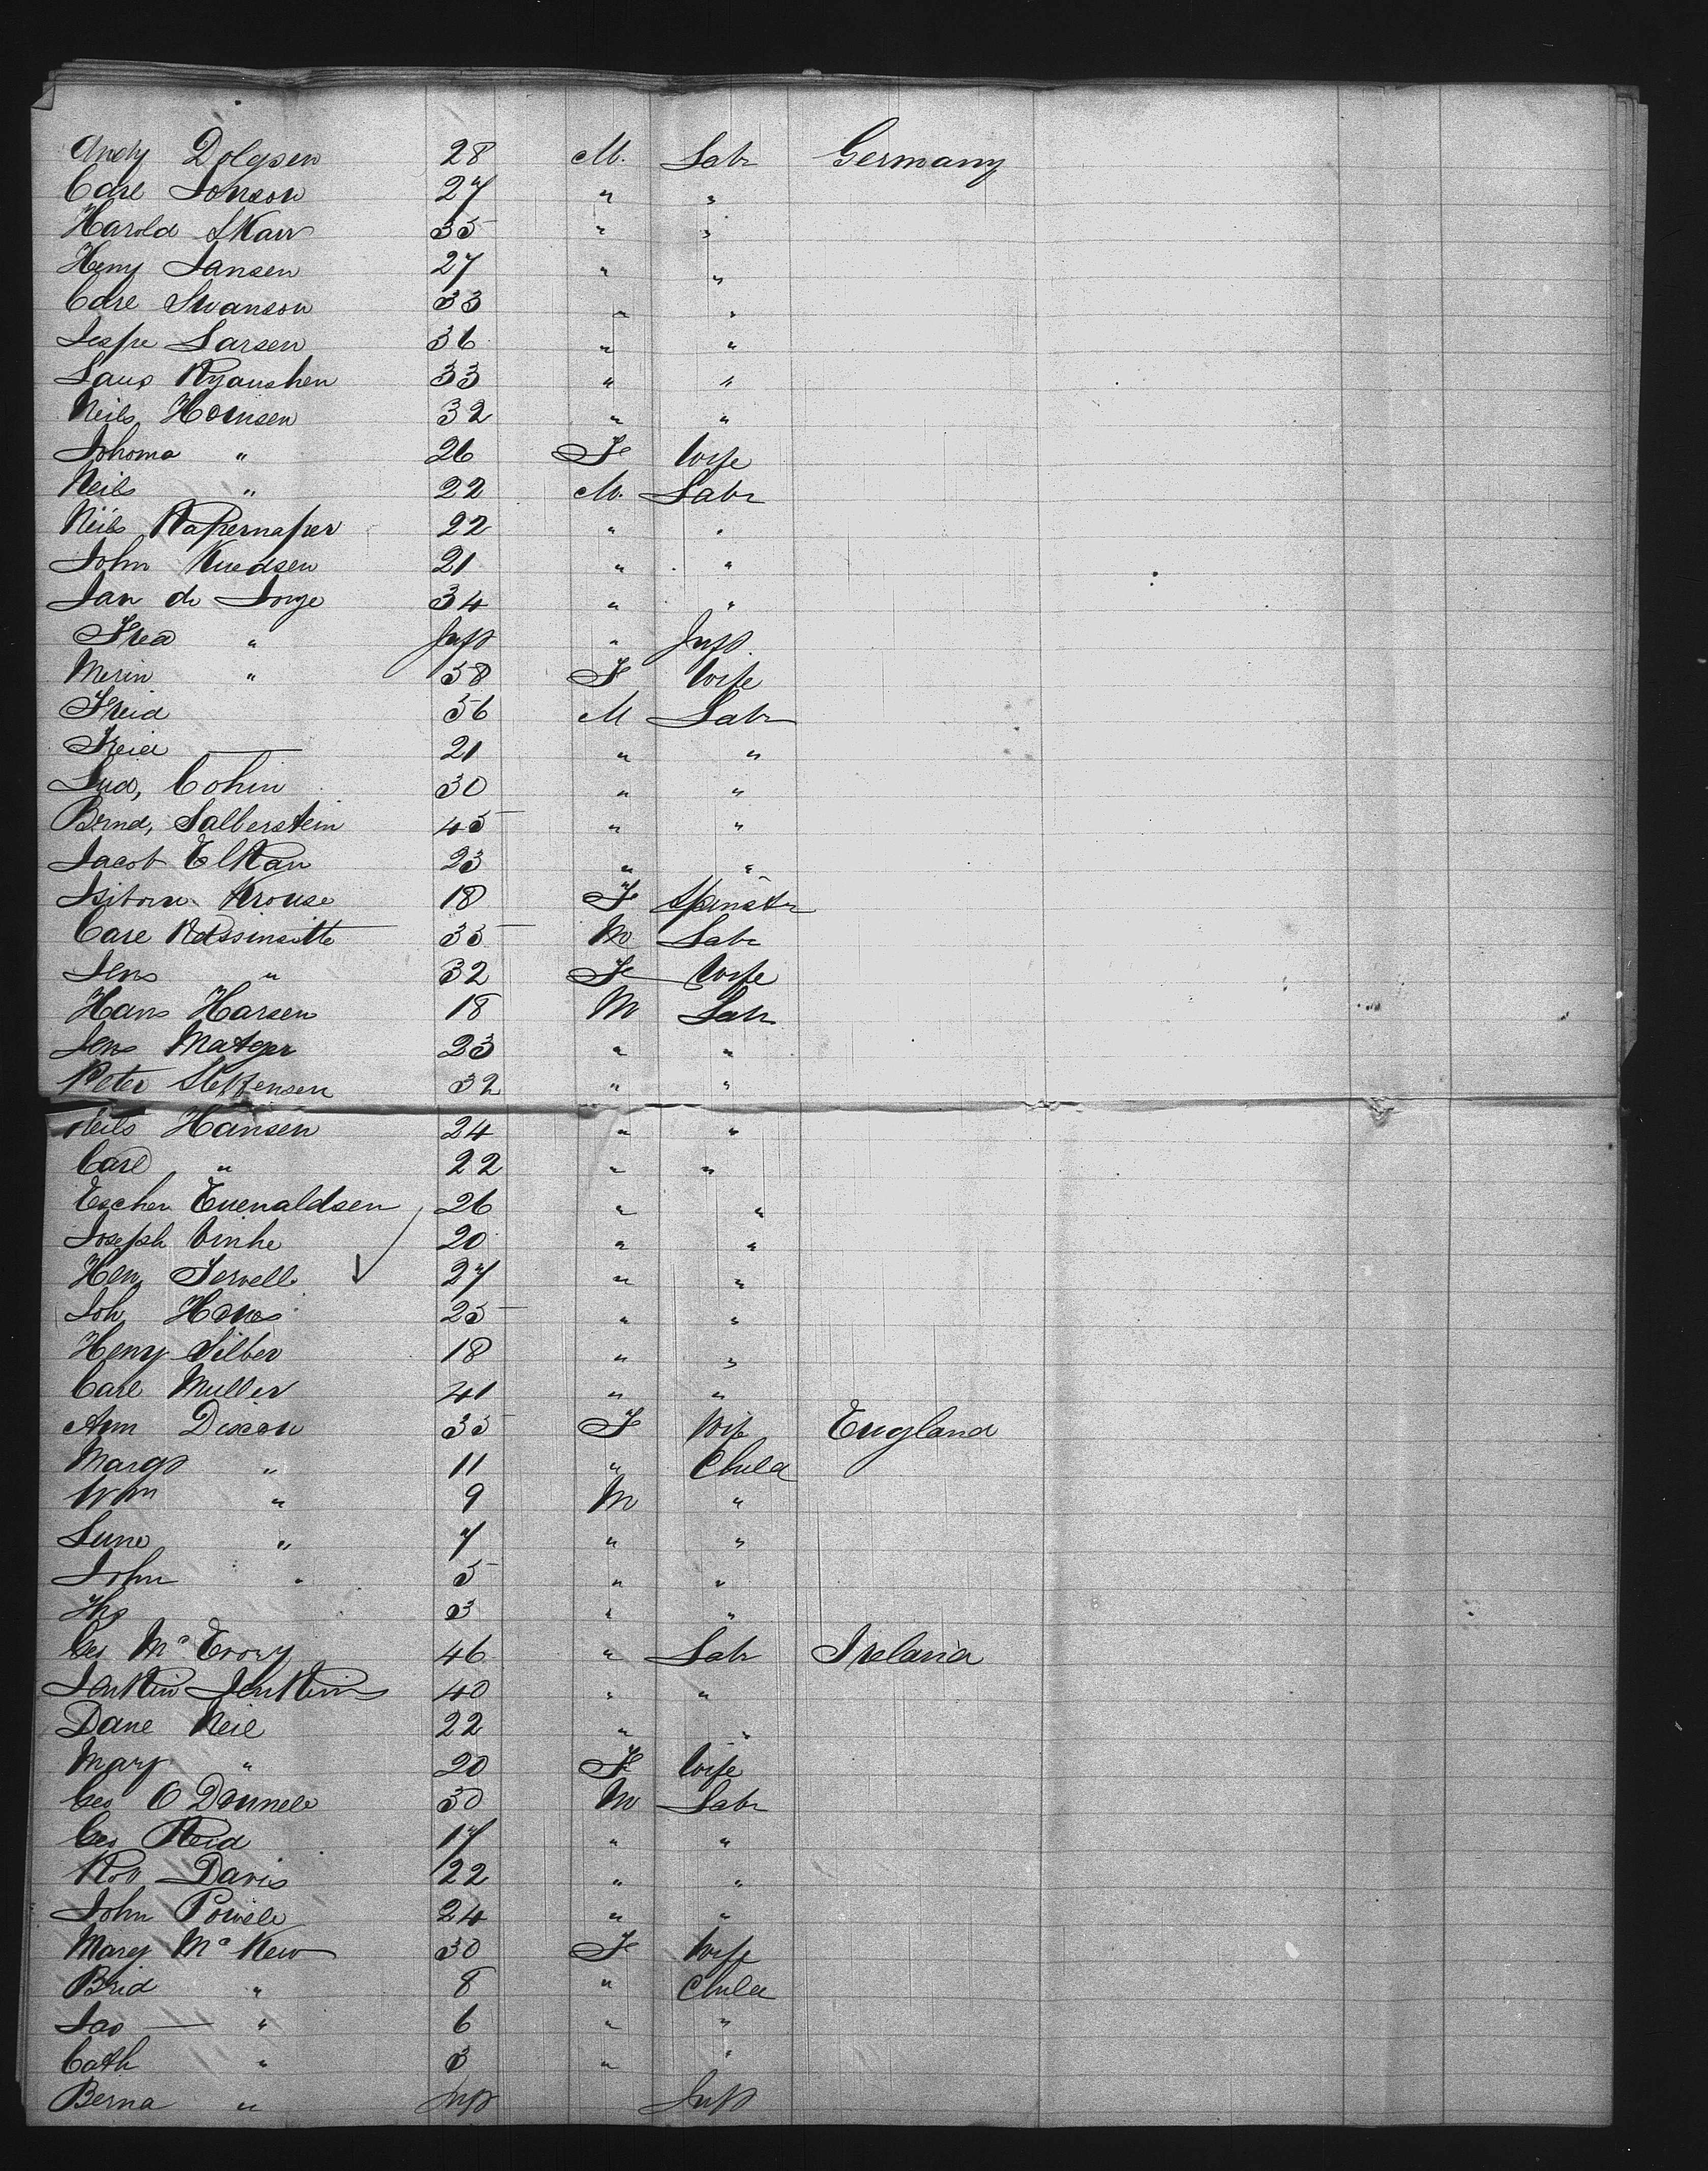 Andy Dolgsen 28 M. Labr Germany
Carl Jonson 27 " "
Harold Skarr 35 " "
Heny Jansen 27 " "
Carl Swanson 33 " "
Jespe Larsen 36 " "
Laus 33 " "
Neils Hornsen 32 " "
Johoma " 26 F Wife
Neils " 22 M. Labr
Neils 22 " "
John Knedsen 21 " "
Jan de Jonge 34 " "
" Inft " Inft.
Merin " 38 F Wife
56 M Labr
21 " "
Lud, Cohin 30 " "
Brnd, Salberstein 45 " "
Jacob Elkan 23 " "
Krouse 18 F Spinstr
Carl 35 M Labr
Jens " 32 F Wife
Hans Harsen 18 M Labr
Jens Matger 23 " "
Peter Steffensen 32 " "
Neils Hansen 24 " "
Carl " 22 " "
Escher Evenaldsen 26 " "
Joseph Vinhe 20 " "
Hen, Servell 27 " "
Joh, 25 " "
Heny Silber 18 " "
Carl Muller 41 " "
Ann Dixon 35 F Wife England
Margt " 11 " Child
Wm " 9 M "
" 7 " "
John " 5 " "
3 " "
Geo McEvory 46 " Labr Ireland
Jenkin Jenkins 40 " "
Dane Neil 22 " "
Mary " 20 F Wife
Geo O Donnell 30 M Labr
Geo Reid 17 " "
Rob Davis 22 " "
John Powell 24 " "
Mary McKew 30 F Wife
Brid " 8 " Child
Jas " 6 " "
Cath " 3 " "
Berna " Inft Inft